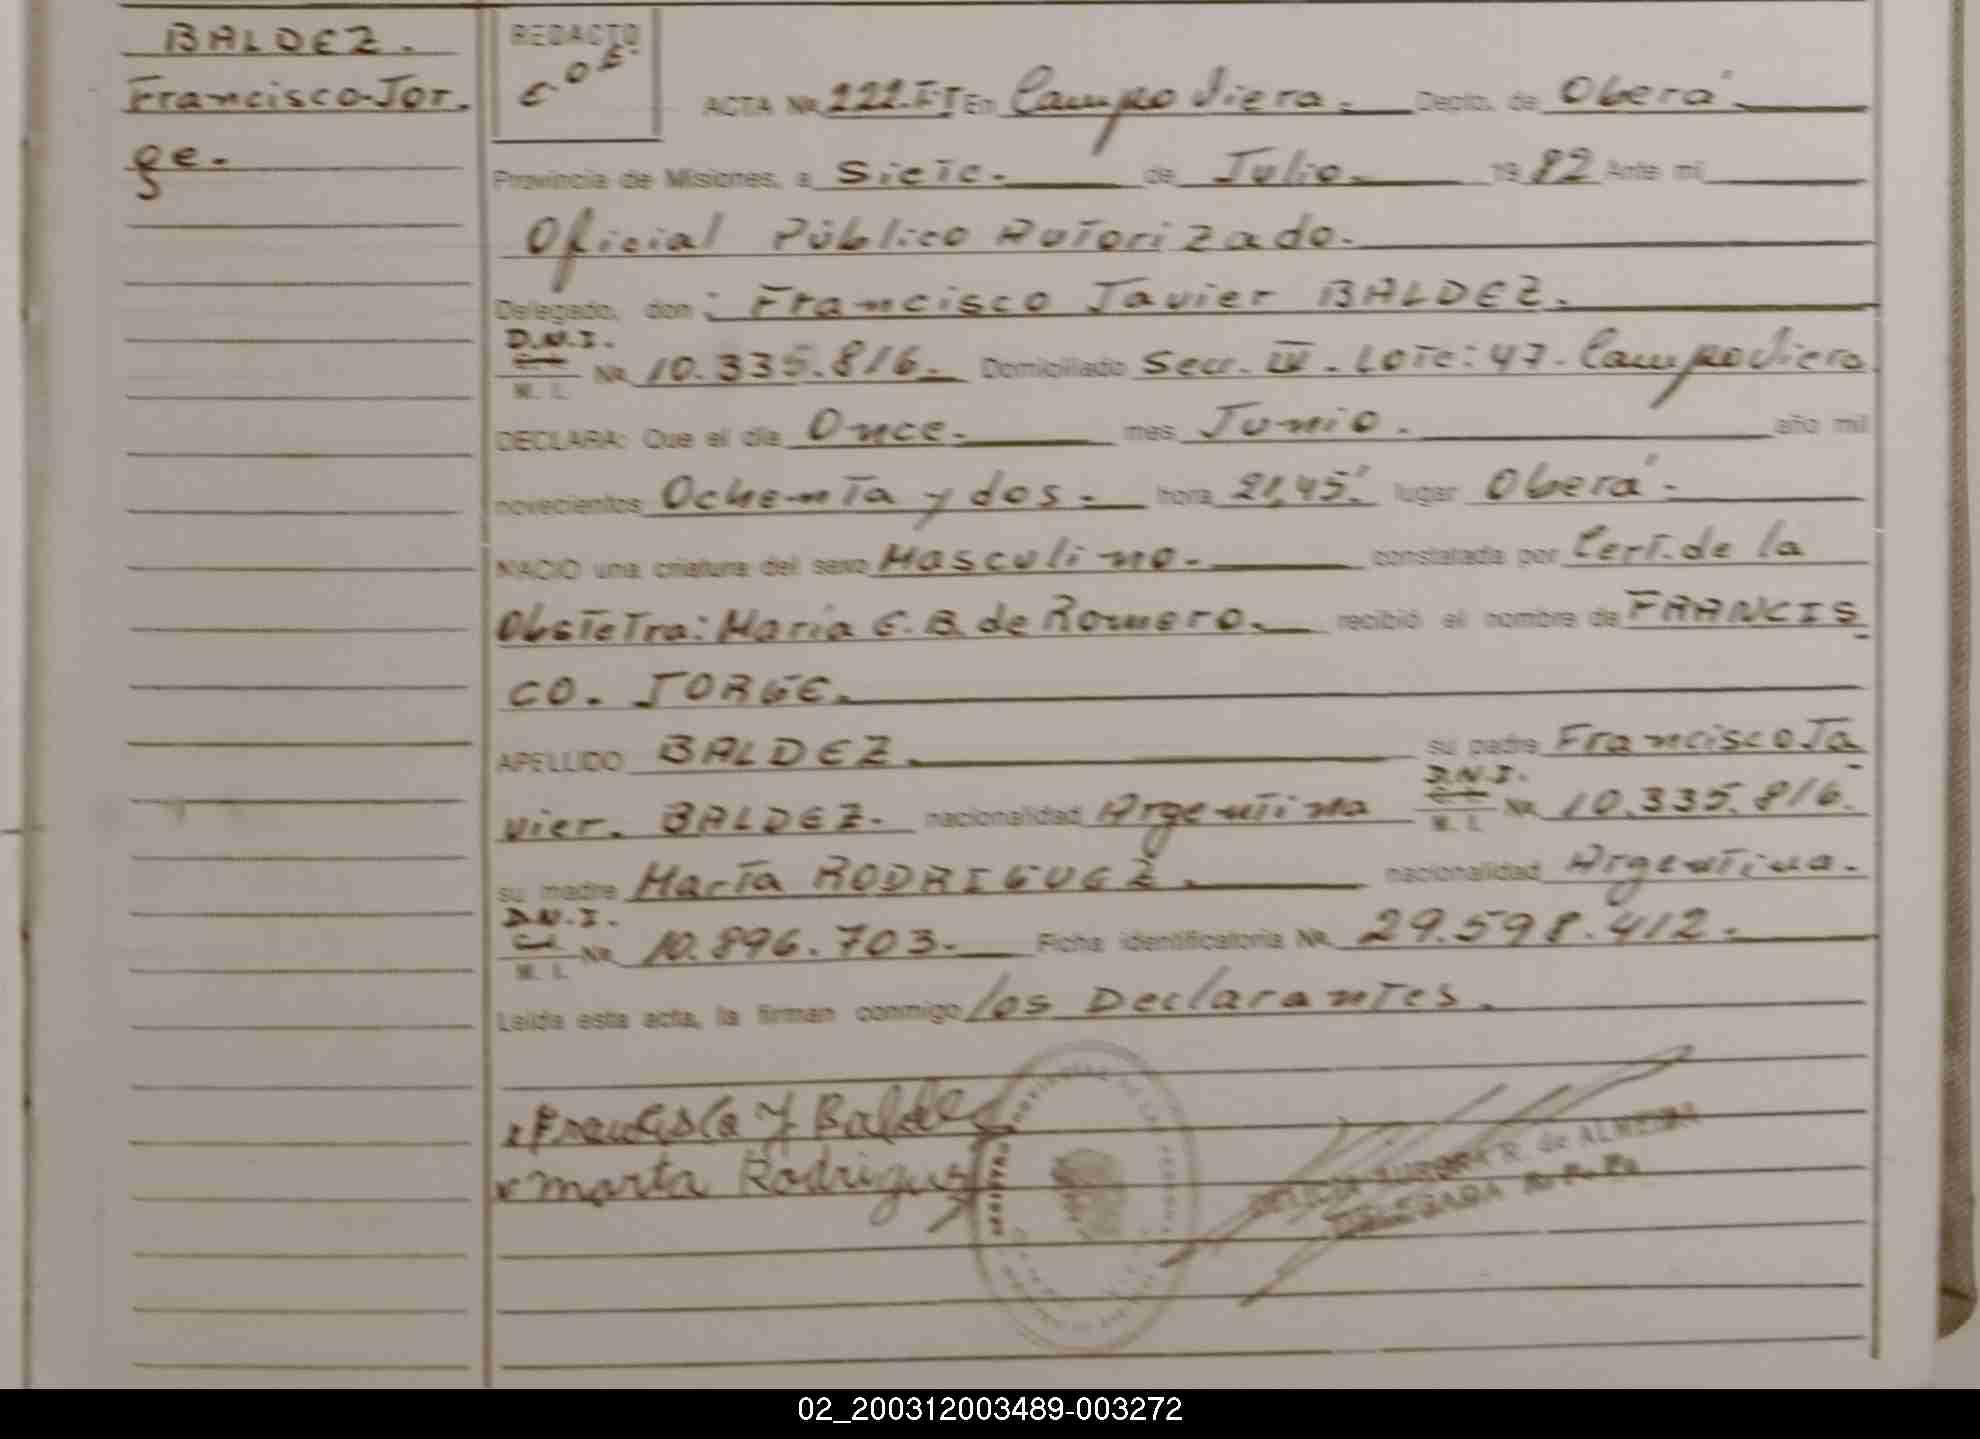 BALDEZ.
Francisco-Jor.
ge.
REDACTO
ACTA Nr. 222.TI En Campo Viera. Depto. de Oberá.
Provincia de Misiones, a Siete. de Julio. 1982 Ante mí
Oficial Público Autorizado.
Delegado, don: Francisco Javier BALDEZ.
D.N.I.
M. I. Nr. 10.335.816. Domiciliado Secc. IV. Lote: 47. Campo Viera
DECLARA: Que el día Once. mes Junio. año mil
novecientos Ochenta y dos. hora 21,45' lugar Oberá.
NACIO una criatura del sexo Masculino. constatada por Cert. de la
Obstetra: María E. B. de Romero. recibió el nombre de FRANCIS
CO. JORGE.
APELLIDO BALDEZ. su padre Francisco Ja
vier. BALDEZ. nacionalidad Argentina D.N.I. M. I. Nr. 10.335.816.
su madre Marta RODRIGUEZ. nacionalidad Argentina.
D.N.I.
M. I. Nr. 10.896.703. Ficha identificatoria Nr. 29.598.412.
Leída esta acta, la firman conmigo los Declarantes.
Francisco J Baldez
Marta Rodriguez
R. de ALMEIDA
DELEGADA
02_200312003489-003272